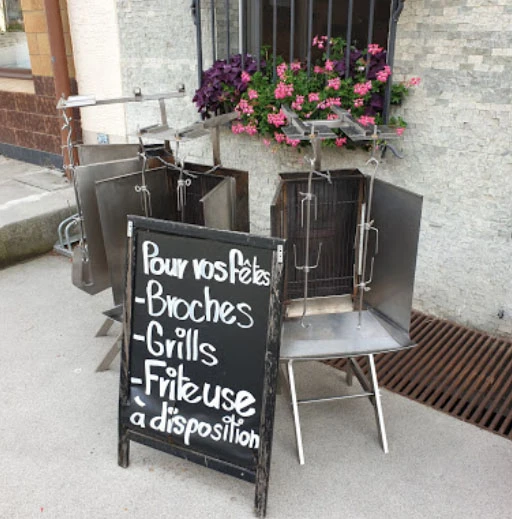 Pour vos fêtes
-Broches
-Grills
-Friteuse
à disposition